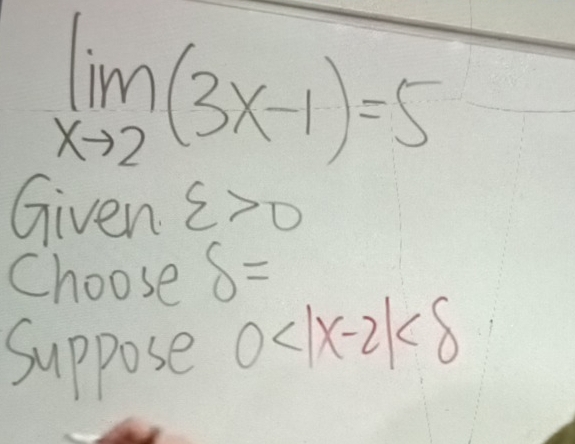 lim (3x-1) = 5
x→2
Given ε > 0
Choose δ =
Suppose 0 < |x-2| < δ